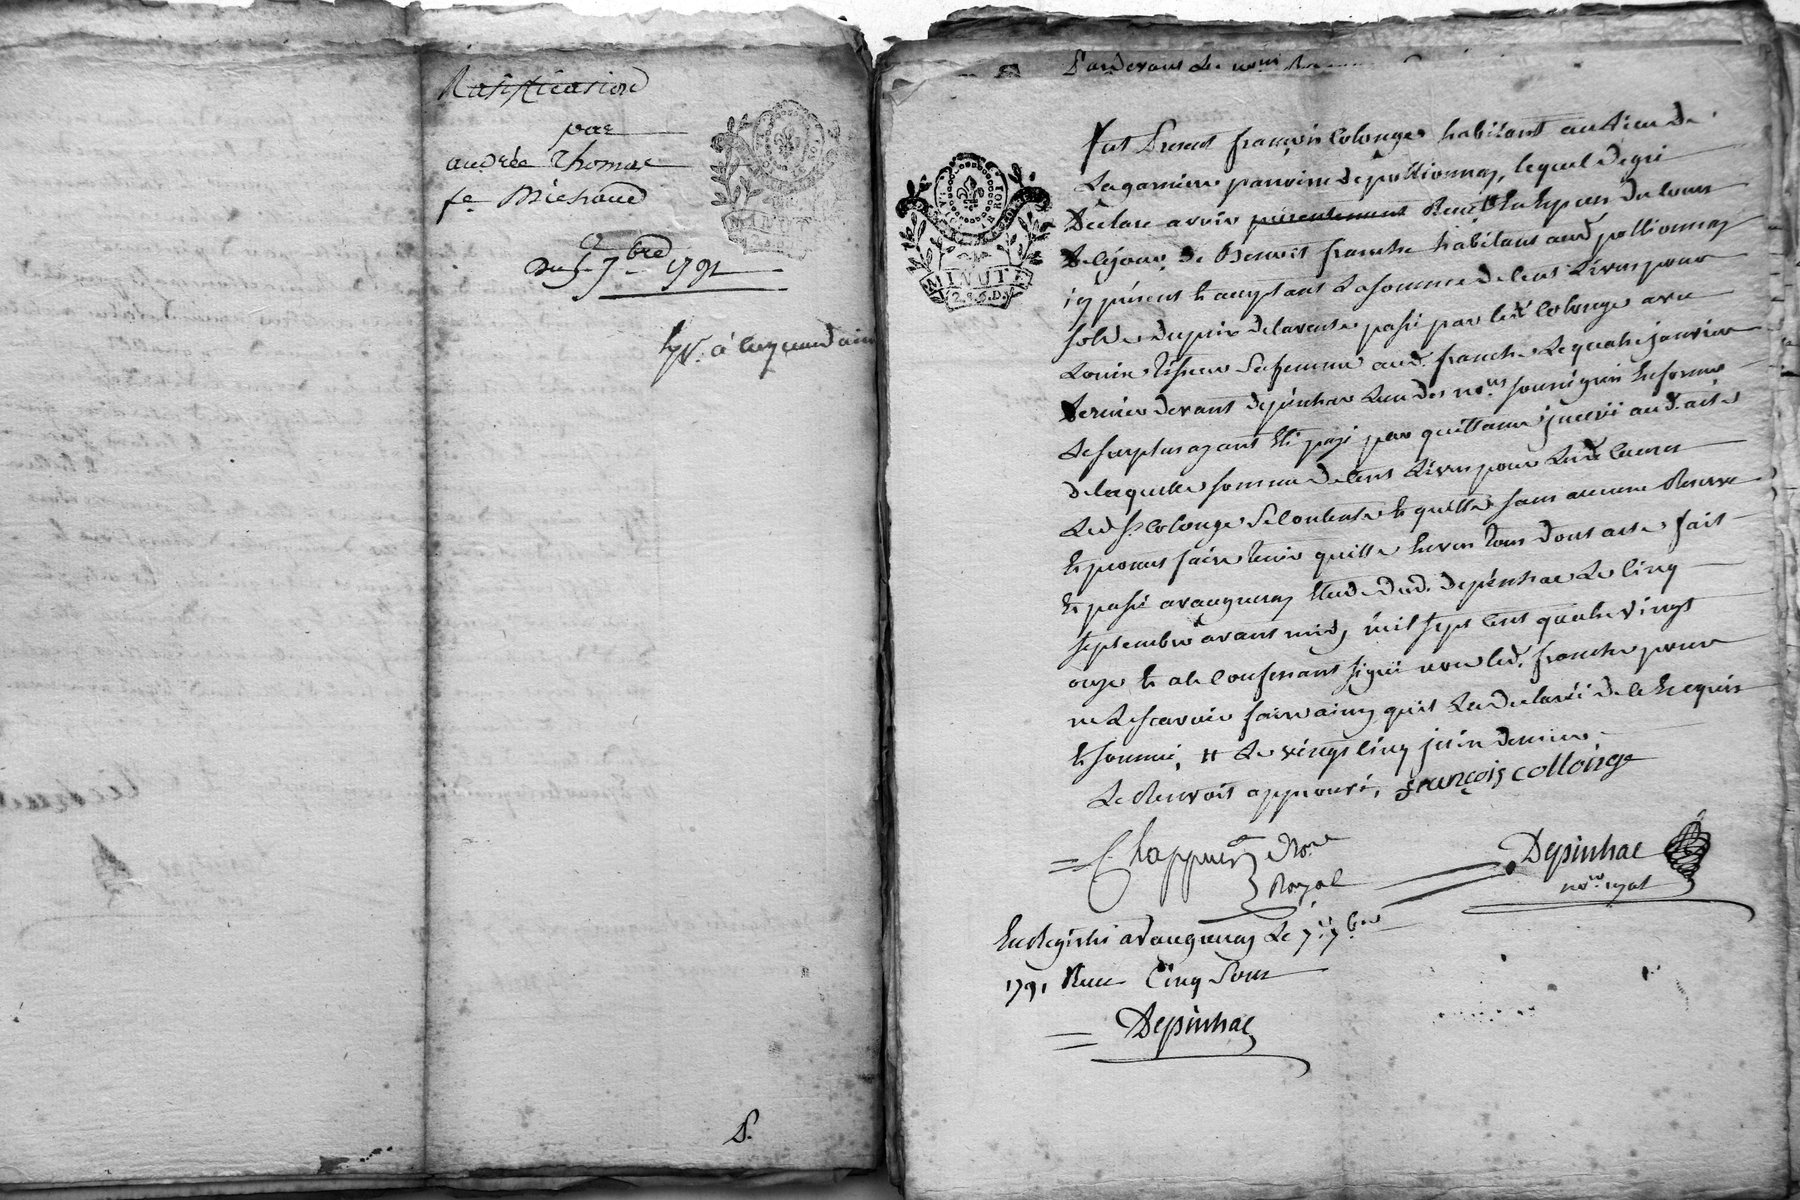 Ratification
par
andrée Thomas
fe Michaud
Du 5 7bre 1791
MINUTE
S.
Pardevant Les nores
fut Present françois Colonges habitant au Lieu de
Lagarniere parroisse de pollionnay, lequel de gré
Declare avoir présentement Receu En Espèces du cours
de cejour, de Benoit franche habitant aud. pollionnay
icy présent et acceptant La somme de cent Livres pour
solde du prix de la vente passé par led. Colonge avec
Louise sa femme aud. franche Le quatre janvier
dernier devant depinhac Lun des nores soussignés En forme
Le surplus ayant Eté payé par quittance audt acte
de laquelle somme de cent Livres pour Les causes
Led. sr Colonge se contente et quitte sans aucune Reserve
Et promet faire tenir quitte Envers tous dont acte fait
Et passé a vaugneray Etude dud. depinhac Le Cinq
septembre avant midy mil sept cent quatre vingt
onze Et a le Confessant signé non led. franche pour
ne Le scavoir faire ainsy qu'il La declaré de ce Enquis
Et sommé, # Le vingt cinq juin dernier.
Le Renvoit approuvé, françois collonge
MINUTE
2.S.6.D.
Chappuis Nore
Royal
Depinhac
nore royal
Enregistré a Vaugneray Le 7bre
1791 Recu Cinq Sous
Depinhac